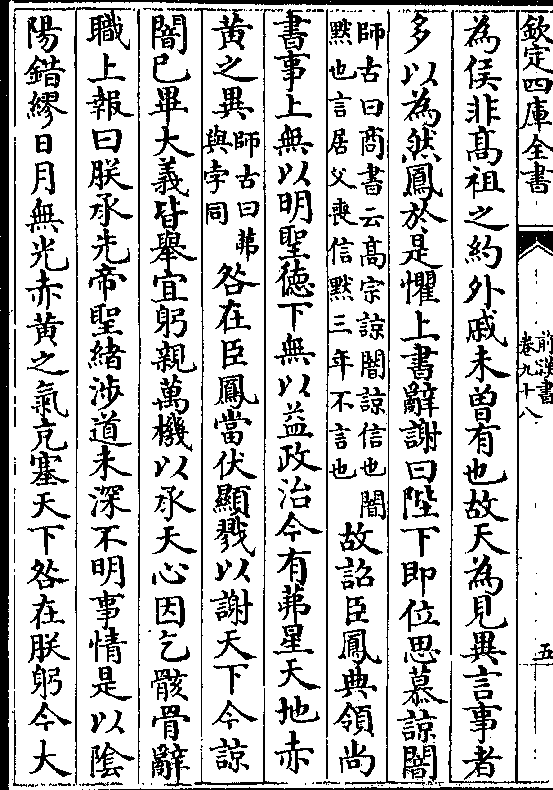 欽定四庫全書
前漢書
卷九十八
五
為侯非髙祖之約外戚未曽有也故天為見異言事者
多以為然鳳於是懼上書辭謝曰陛下即位思慕諒闇
師古曰商書云髙宗諒闇諒信也闇
黙也言居父喪信黙三年不言也
故詔臣鳳典領尚
書事上無以明聖德下無以益政治今有茀星天地赤
黄之異
師古曰茀
與孛同
咎在臣鳳當伏顯戮以謝天下今諒
闇已畢大義皆舉宜躬親萬機以承天心因乞骸骨辭
職上報曰朕承先帝聖緒渉道未深不明事情是以陰
陽錯繆日月無光赤黄之氣充塞天下咎在朕躬今大